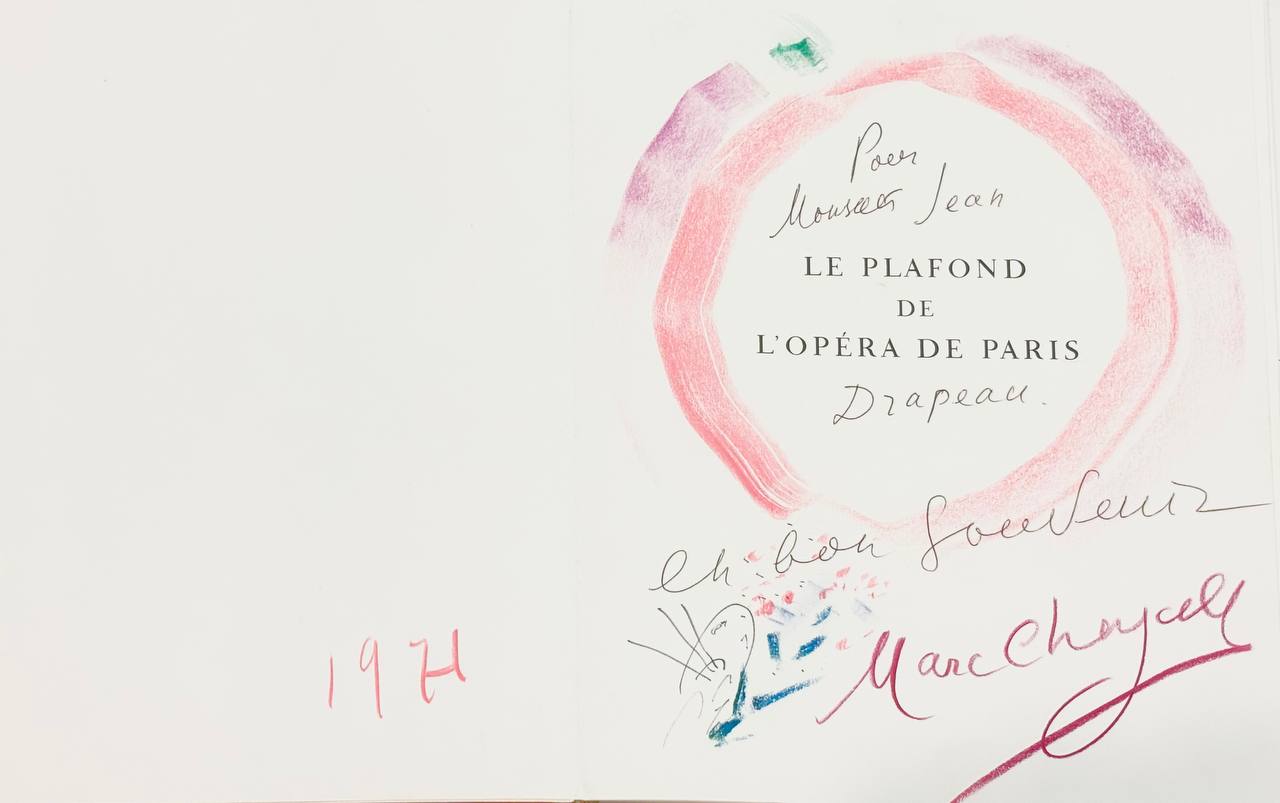 1971
Pour
Monsieur Jean
LE PLAFOND
DE
L'OPÉRA DE PARIS
Drapeau.
en bon Souvenir
Marc Chagall